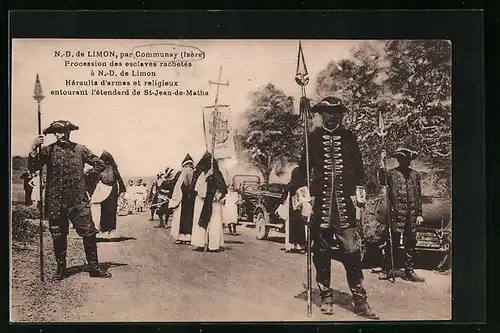 N.-D. de LIMON, par Communay (Isère)
Procession des esclaves rachetés
à N.-D. de Limon
Héraults d'armes et religieux
entourant l'étendard de St-Jean-de-Matha